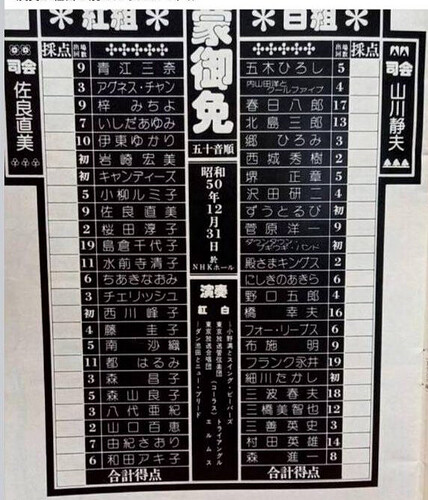 紅組
蒙御免
白組
採点
出場回数
司会
佐良直美
9 青江三奈
3 アグネス・チャン
9 梓みちよ
7 いしだあゆみ
10 伊東ゆかり
初 岩崎宏美
初 キャンディーズ
5 小柳ルミ子
9 佐良直美
2 桜田淳子
19 島倉千代子
11 水前寺清子
6 ちあきなおみ
3 チェリッシュ
初 西川峰子
4 藤圭子
5 南沙織
11 都はるみ
3 森昌子
5 森山良子
3 八代亜紀
2 山口百恵
7 由紀さおり
6 和田アキ子
合計得点
五十音順
昭和50年12月31日
於
NHKホール
演奏
紅 白
小野満とスイング・ビーバーズ
東京放送管弦楽団
東京放送合唱団
(コーラス)
トライアングル
エルムス
ダン池田とニュー・ブリード
出場回数
採点
司会
山川静夫
五木ひろし 5
内山田洋とクールファイブ 4
春日八郎 17
北島三郎 13
郷ひろみ 3
西城秀樹 2
堺正章 5
沢田研二 4
ずうとるび 初
菅原洋一 9
ダウン・タウン・ブギウギ・バンド 初
殿さまキングス 2
にしきのあきら 6
野口五郎 4
橋幸夫 16
フォー・リーブス 6
布施明 9
フランク永井 19
細川たかし 初
三波春夫 18
三橋美智也 12
三善英史 3
村田英雄 14
森進一 8
合計得点